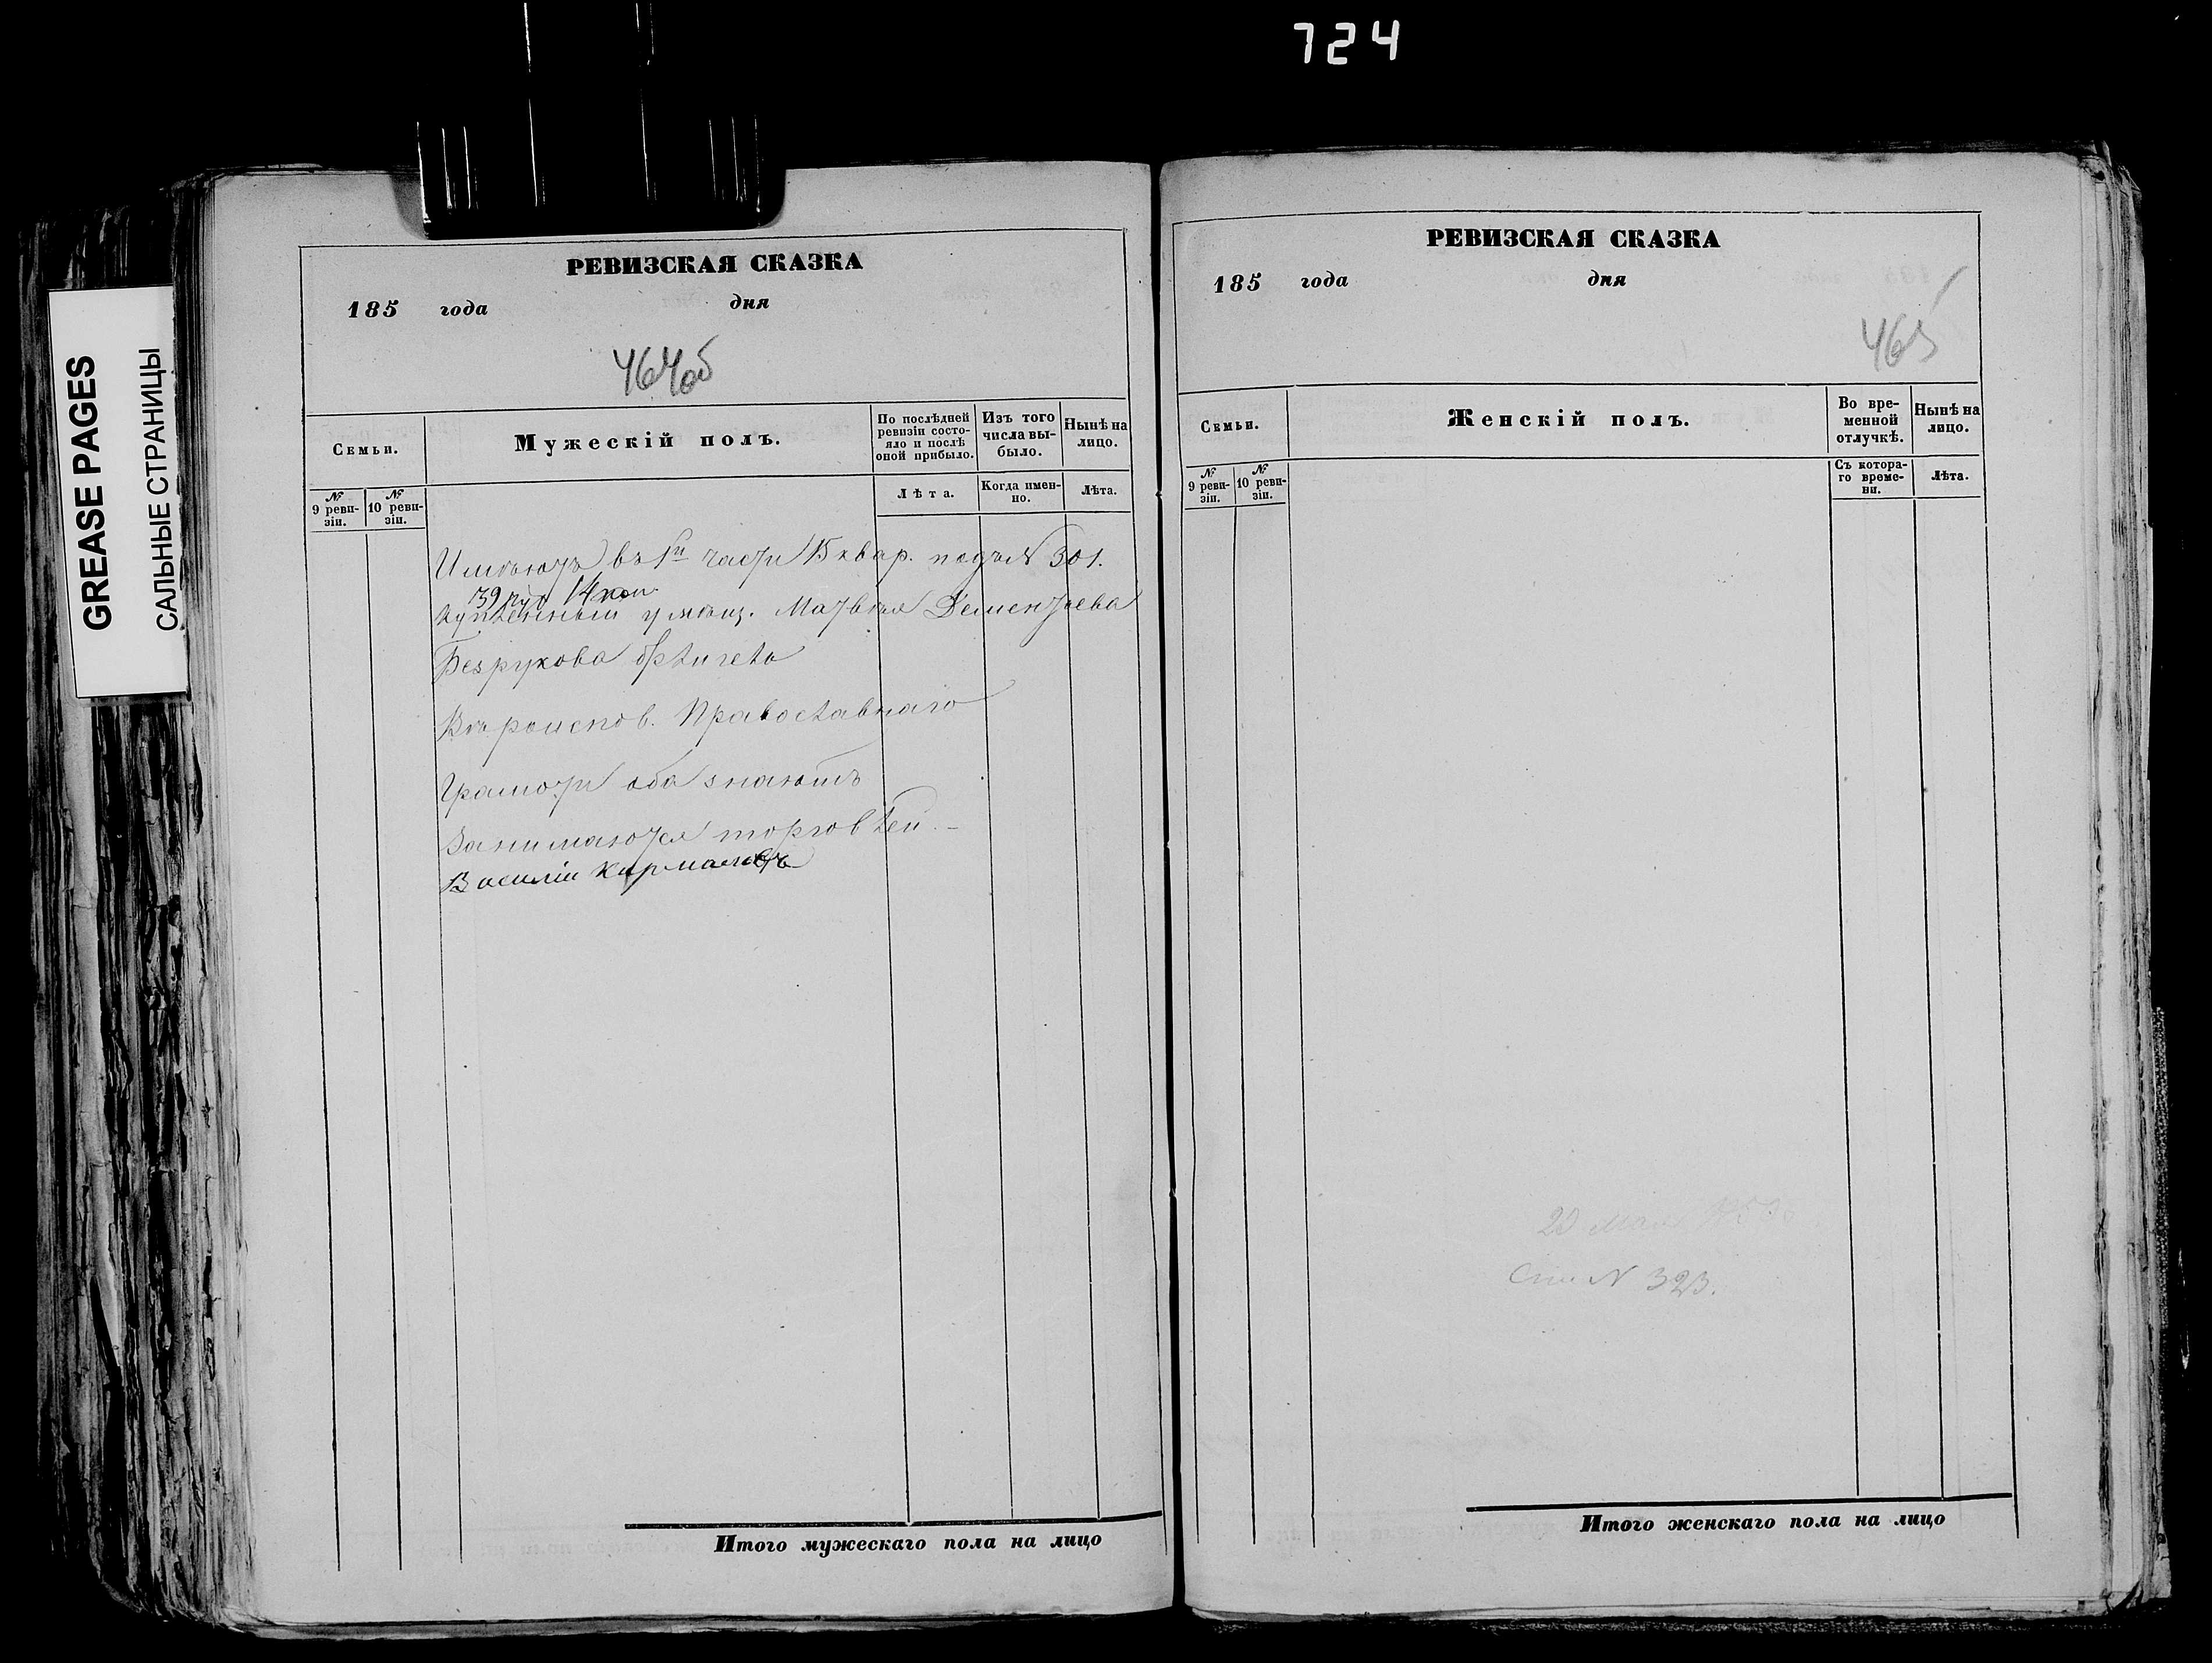 724
GREASE PAGES
САЛЬНЫЕ СТРАНИЦЫ
РЕВИЗСКАЯ СКАЗКА
185 года дня
464об
Семьи.
Мужескій полъ.
По послѣдней ревизіи состояло и послѣ оной прибыло.
Изъ того числа выбыло.
Нынѣ на лицо.
№ 9 ревизіи.
№ 10 ревизіи.
Лѣта.
Когда именно.
Лѣта.
Имѣютъ въ 1й части 15 квар. подъ № 301.
39 руб 14 коп
купленный у мѣщ. Матвѣя Дементьева
Безрукова
Вѣроиспов. Православнаго
Грамоти оба знаютъ
Занимаются торговлей.
Василій
Итого мужескаго пола на лицо
РЕВИЗСКАЯ СКАЗКА
185 года дня
465
Семьи.
Женскій полъ.
Во временной отлучкѣ.
Нынѣ на лицо.
№ 9 ревизіи.
№ 10 ревизіи.
Съ котораго времени.
Лѣта.
№ 323.
Итого женскаго пола на лицо